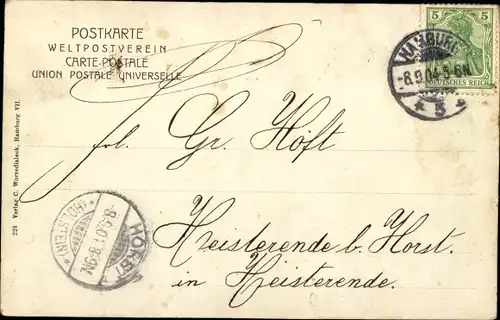 POSTKARTE
WELTPOSTVEREIN
CARTE-POSTALE
UNION POSTALE UNIVERSELLE
5 5
DEUTSCHES REICH
HAMBURG
-8.9.04.5-6N.
* 5
Frl. Gr. Höft
Heisterende b. Horst.
in Heisterende.
HORST
(HOLSTEIN)
228 Verlag C. Worzedialeck, Hamburg VII.